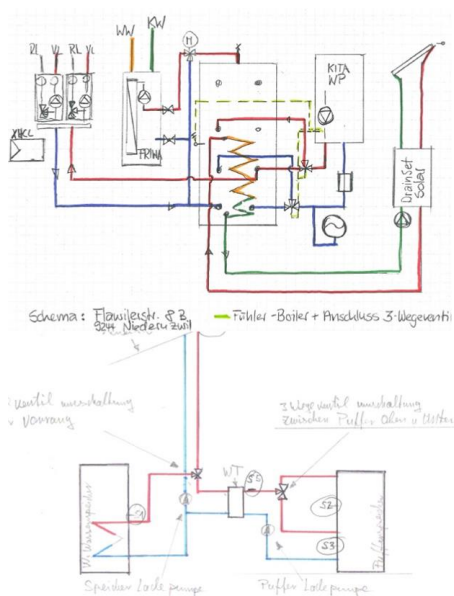 RL VL RL VL
WW KW
M
KITA
WP
XHCC
FRIWA
DrainSet
Solar
Schema: Flawilerstr. 8B,
9244 Niederuzwil
Fühler-Boiler + Anschluss 3-Wegeventil
ventil umschaltung
Vorrang
3 Wege ventil umschaltung
zwischen Puffer Oben u Unten
WT
S1
S2
S3
Pufferspeicher
Speicher Ladepumpe
Puffer Ladepumpe